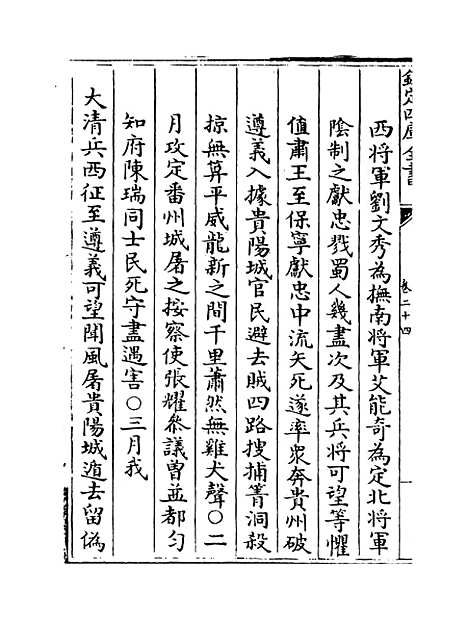 欽定四庫全書
卷二十四
西將軍劉文秀為撫南將軍艾能奇為定北將軍
陰制之獻忠戮蜀人幾盡次及其兵將可望等懼
值肅王至保寧獻忠中流矢死遂率衆奔貴州破
遵義入據貴陽城官民避去賊四路搜捕菁洞殺
掠無算平威龍新之間千里蕭然無雞犬聲○二
月攻定番州城屠之按察使張耀叅議曽益都勻
知府陳瑞同士民死守盡遇害○三月我
大清兵西征至遵義可望聞風屠貴陽城遁去留偽